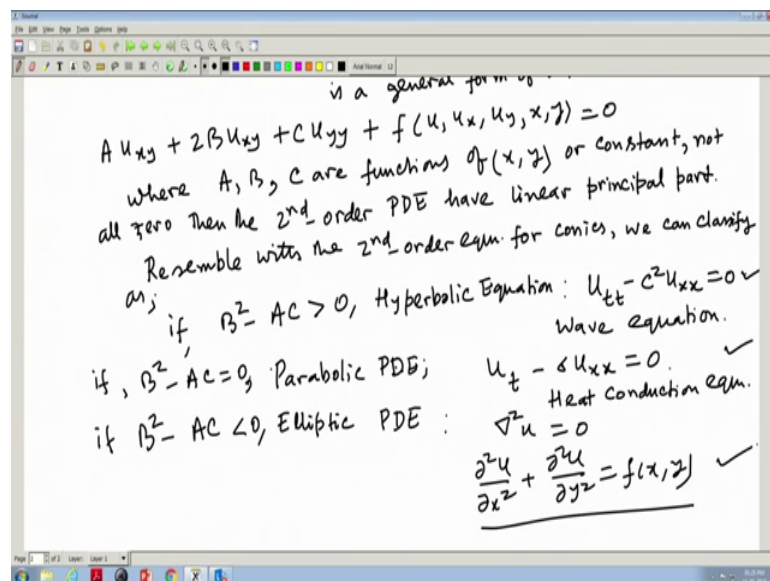 Journal
File Edit View Page Tools Options Help
Arial Normal 12
is a general form of
A u_xy + 2B u_xy + C u_yy + f(u, u_x, u_y, x, y) = 0
where A, B, C are functions of (x, y) or constant, not
all zero then the 2nd order PDE have linear principal part.
Resemble with the 2nd order eqn. for conics, we can classify
as;
if, B² - AC > 0, Hyperbolic Equation : u_tt - c² u_xx = 0 ✓
Wave equation.
if, B² - AC = 0, Parabolic PDE; u_t - α u_xx = 0. ✓
Heat conduction eqn.
if B² - AC < 0, Elliptic PDE : ∇²u = 0
∂²u/∂x² + ∂²u/∂y² = f(x, y) ✓
Page 2 of 2 Layer: Layer 1